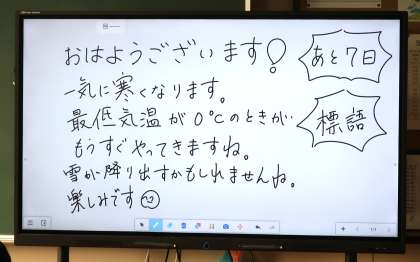 おはようございます！
あと7日
一気に寒くなります。
最低気温が0℃のときが…
標語
もうすぐやってきますね。
雪が降り出すかもしれませんね。
楽しみです